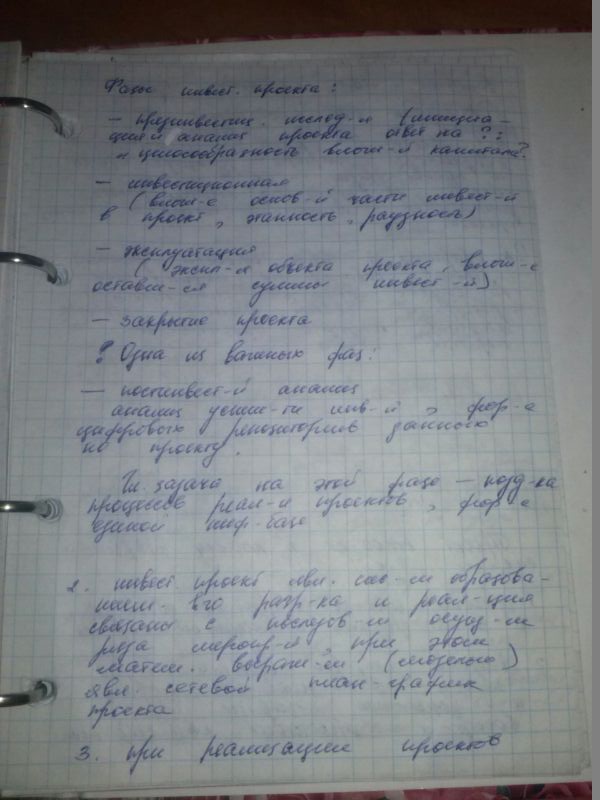 Фазы инвест. проекта:
– прединвестиц. исслед-я (инициа-
ция и анализ проекта ответ на ?:
и целесообразность влож-я капитала?
– инвестиционная
(влож-е основ-й части инвест-й
в проект, этапность, раундность)
– эксплуатация
(экспл-я объекта проекта, влож-е
оставш-ся суммы инвест-й)
– закрытие проекта
? Одна из важных фаз:
– постинвест-й анализ
анализ успеш-ти инв-й, фор-е
цифрового репозитория данного
по проекту.
Гл. задача на этой фазе – подд-ка
процессов реал-и проектов, фор-е
единой инф. базы
2. инвест. проект явл. сло-м образова-
нием. Его разр-ка и реал-ция
связаны с последов-м осущ-м
ряда меропр-й, при этом
матем. выраж-ем (моделью)
явл. сетевой план-график
проекта
3. при реализации проектов